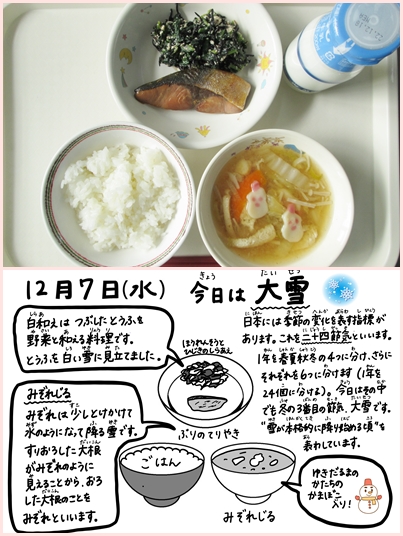 12月7日(水)
今日は 大雪
きょう
たい せつ
白和えは つぶしたとうふを
野菜と和える料理です。
とうふを白い雪に見立てました。
みぞれじる
みぞれは 少しとけかけて
水のようになって降る雪です。
すりおろした大根
がみぞれのように
見えることから、おろ
した大根のことを
みぞれといいます。
ほうれんそうと
ひじきのしらあえ
ぶりのてりやき
ごはん
みぞれじる
日本には季節の変化を表す指標が
あります。これを二十四節気といいます。
1年を春夏秋冬の4つに分け、さらに
それぞれを6つに分けます(1年を
24個に分ける)。今日はその中
でも冬の3番目の節気、大雪です。
"雪が本格的に降り始める頃"を
表わしています。
ゆきだるまの
かたちの
かまぼこ
入り!